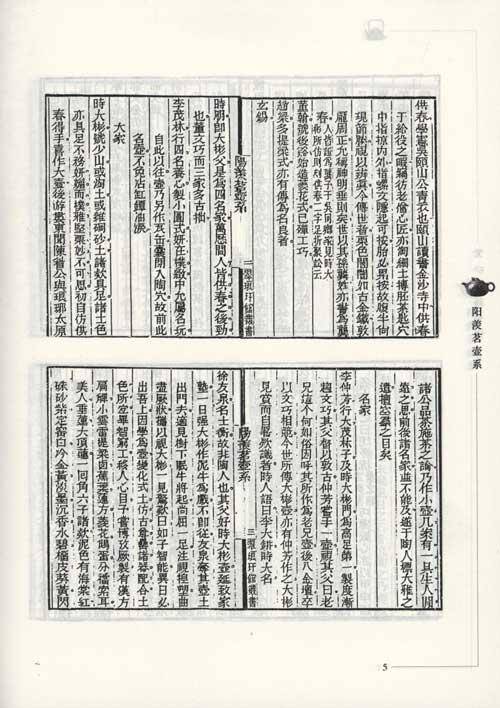 供春學憲吳頤山公青衣也頤山讀書金沙寺中供春
於給役之暇竊倣老僧心匠亦淘細土摶胚茶匙穴
中指掠內外指螺文隱起可按胎必累按故腹半尚
現節腠視以辨真今傳世者栗色闇闇如古金鐵敦
龐周正允稱神明垂則矣世以其孫龔姓亦書為龔
春人皆證為龔予于吳冏卿家見時大
彬所仿則刻供春二字足折聚訟云
董翰號後谿始造菱花式已殫工巧
趙梁多提梁式亦有傳為名良者
玄錫
陽羨茗壺系 二 翠琅玕館叢書
時朋即大彬父是為四名家萬厯間人皆供春之後勁
也董文巧而三家多古拙
李茂林行四名養心製小圓式姸在樸緻中允屬名玩
自此以往壺乃另作瓦缶囊閉入陶穴故前此
名壺不免沾缸罈油淚
大家
時大彬號少山或淘土或雜碙砂土諸款具足諸土色
亦具足不務姸媚而樸雅堅栗妙不可思初自仿供
春得手喜作大壺後游婁東聞陳眉公與琅琊太原
諸公品茶施茶之論乃作小壺几案有一具生人閒
遠之思前後諸名家並不能及遂于陶人標大雅之
遺擅空羣之目矣
名家
李仲芳行大茂林子及時大彬門為高足第一製度漸
趨文巧其父督以敦古仲芳嘗手一壺視其父曰老
兄這個何如俗因呼其所作為老兄壺後入金壇卒
以文巧相競今世所傳大彬壺亦有仲芳作之大彬
見賞而自署款識者時人語曰李大缾時大名
陽羨茗壺系 三 翠琅玕館叢書
徐友泉名士衡故非陶人也其父好時大彬壺延致家
塾一日强大彬作泥牛為戲不卽從友泉奪其壺土
出門去適見樹下眠牛將起尚屈一足注視揑塑曲
盡厥狀攜以視大彬一見驚歎曰如子智能異日必
出吾上因學為壺變化式土仿古尊罍諸器配合土
色所宜畢智窮工移人心目予嘗博攷厥製有漢方
扁觶小雲雷提梁卣蕉葉蓮方菱花鵝蛋分襠索耳
美人垂蓮大頂蓮一回角六子諸款泥色有海棠紅
硃砂紫定窰白冷金黃淡墨沉香水碧榴皮葵黃閃
阳羡茗壶系
5